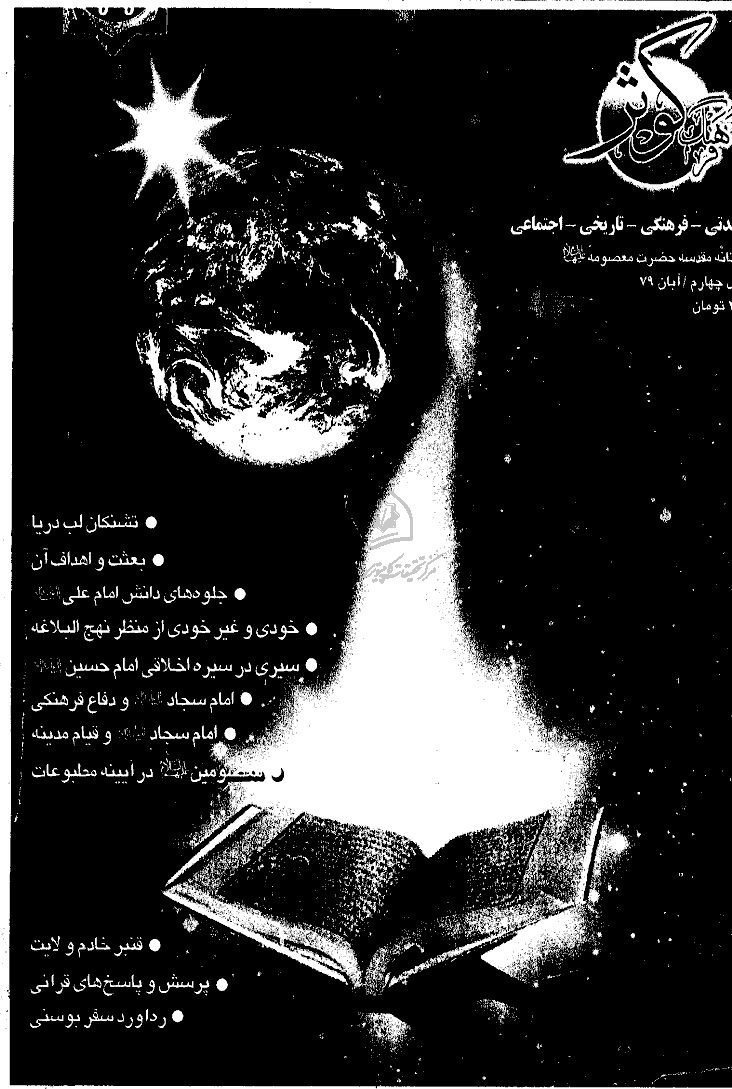 فرهنگ کوثر
فرهنگی - تاریخی - اجتماعی
مقدسه حضرت معصومه
چهارم / آبان ۷۹
تومان
● تشنگان لب دریا
● بعثت و اهداف آن
● جلوه‌های دانش امام علی
● خودی و غیر خودی از منظر نهج البلاغه
● سیری در سیره اخلاقی امام حسین
● امام سجاد و دفاع فرهنگی
● امام سجاد و قیام مدینه
● معصومین در آیینه مطبوعات
● قنبر خادم ولایت
● پرسش و پاسخ‌های قرآنی
● رهاورد سفر بوسنی